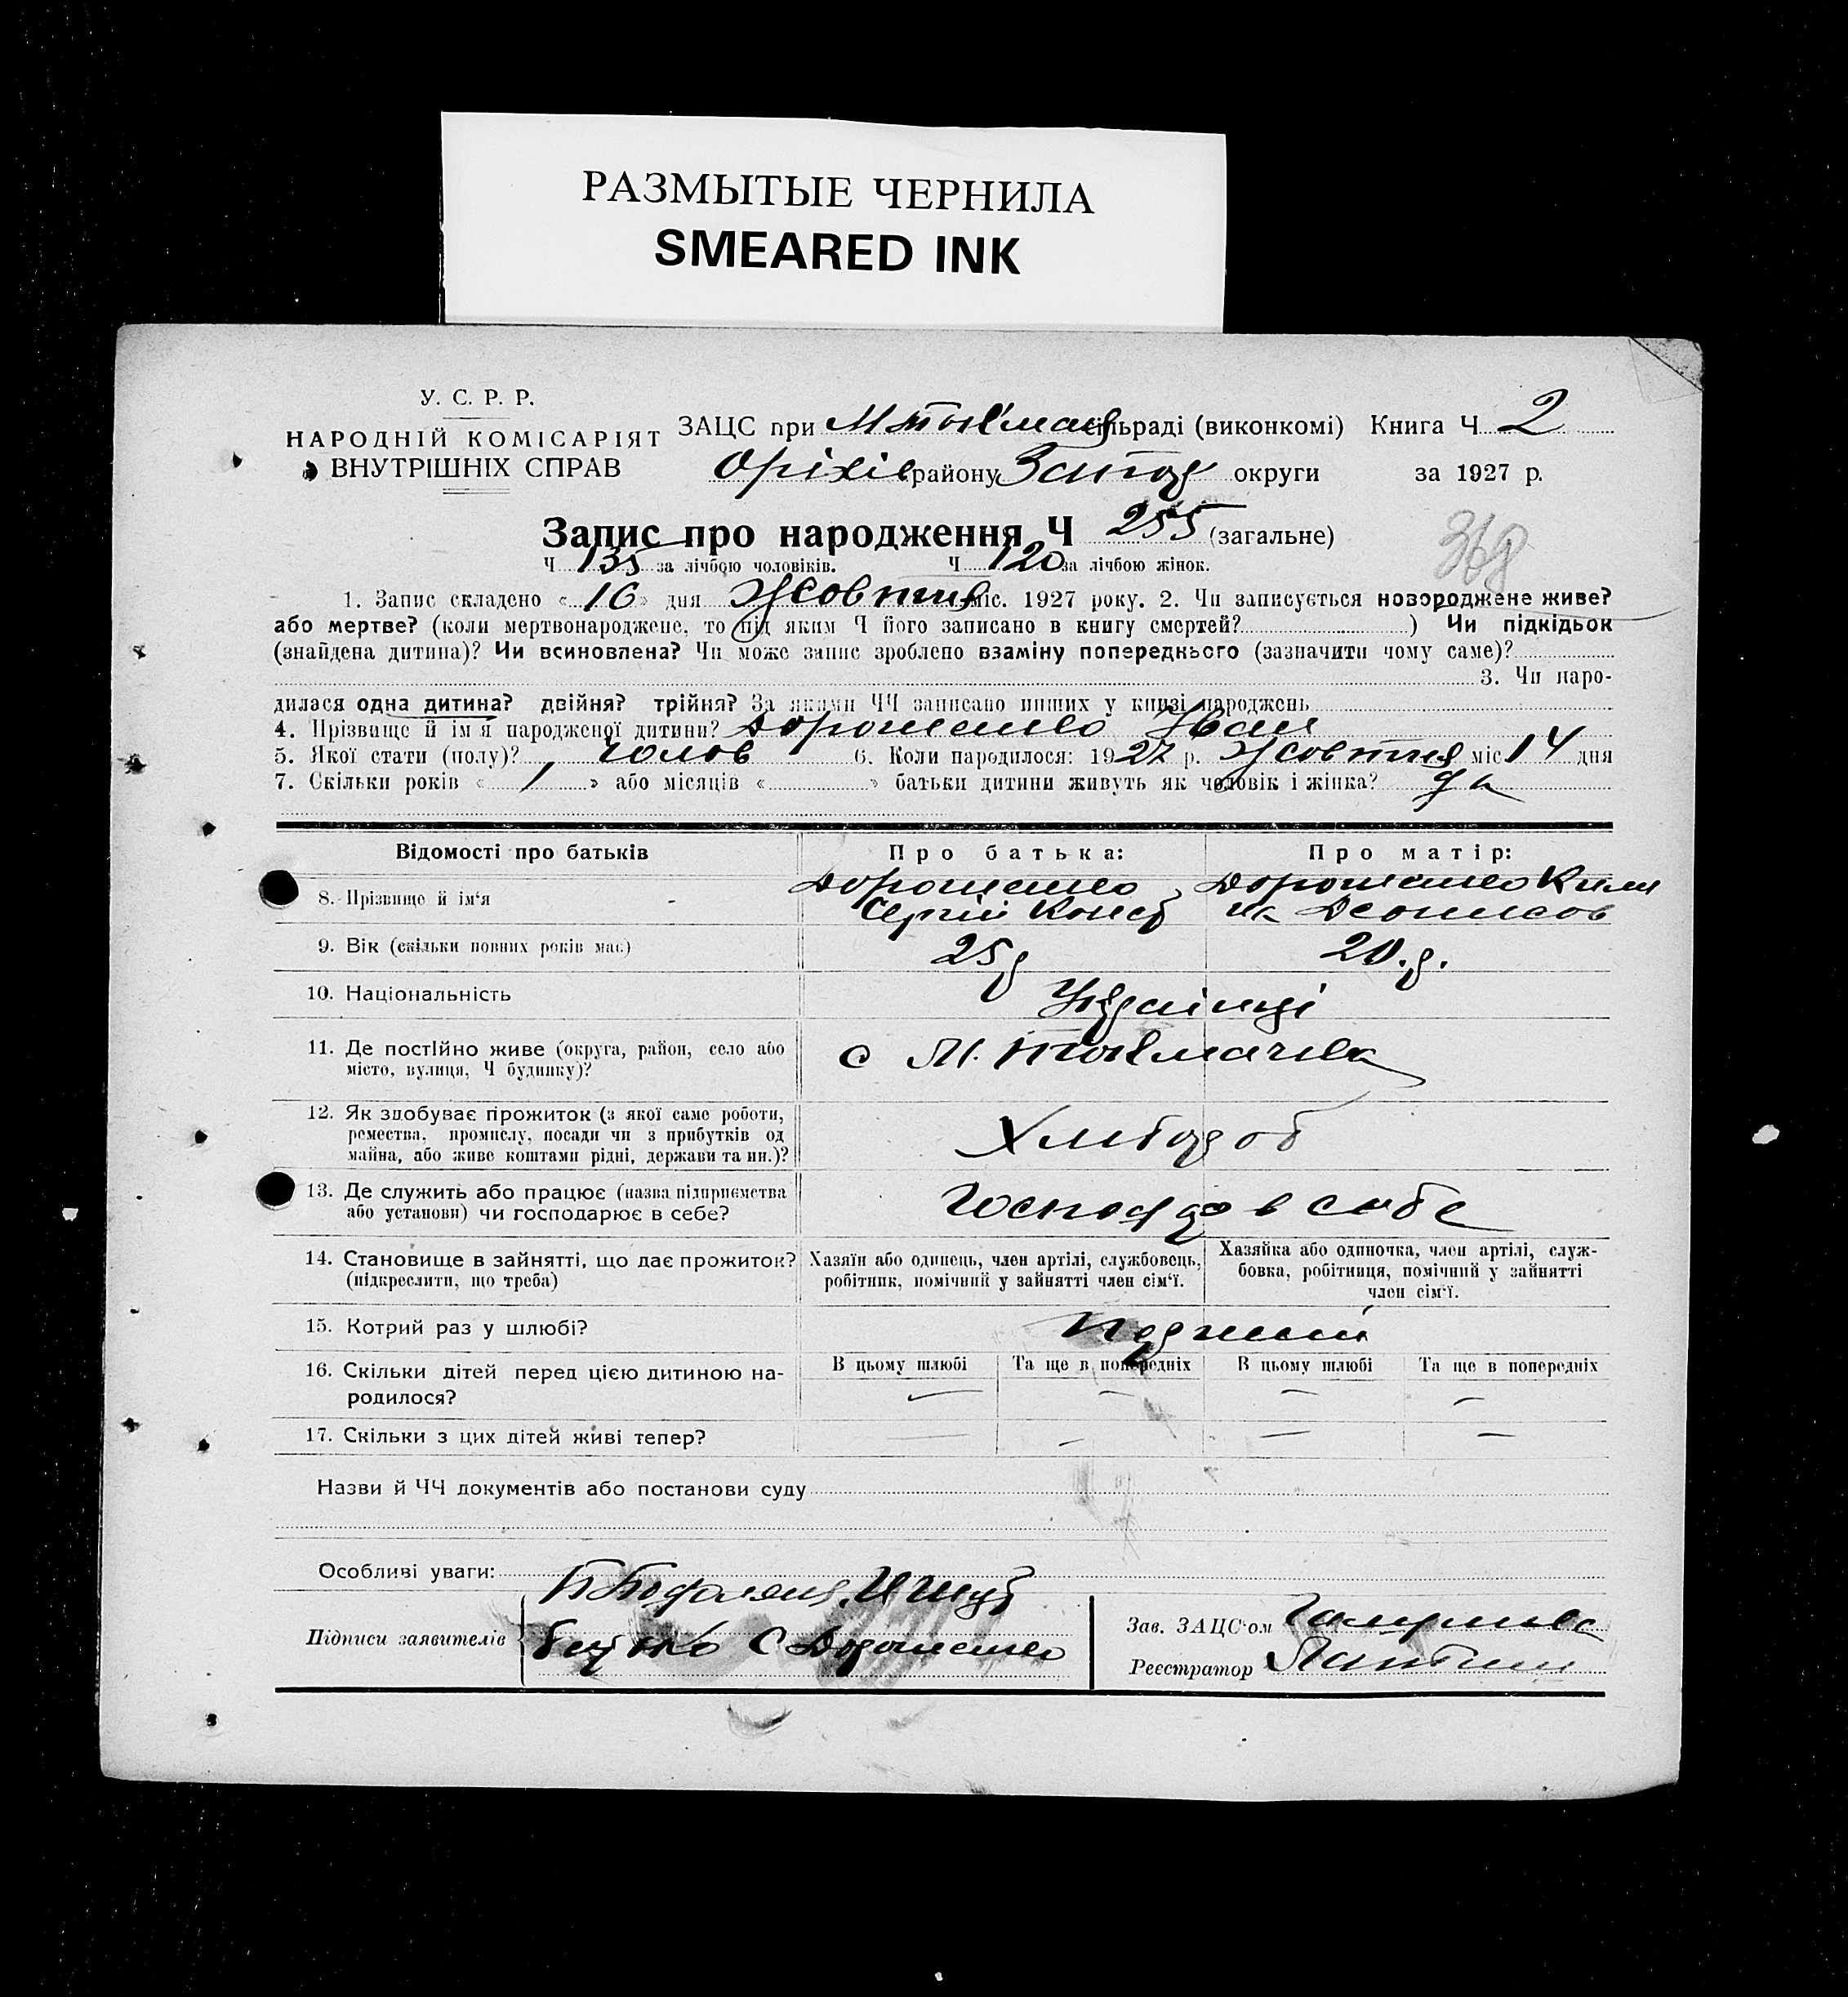 РАЗМЫТЫЕ ЧЕРНИЛА
SMEARED INK
У. С. Р. Р.
НАРОДНІЙ КОМІСАРІЯТ
ВНУТРІШНІХ СПРАВ
ЗАЦС при сільраді (виконкомі) Книга Ч 2
Оріхів району Запор округи за 1927 р.
Запис про народження Ч 255 (загальне)
368
Ч 135 за лічбою чоловіків. Ч 120 за лічбою жінок.
1. Запис складено «16» дня Жовтня міс. 1927 року. 2. Чи записується новороджене живе?
або мертве? (коли мертвонароджене, то під яким Ч його записано в книгу смертей? ) Чи підкідьок
(знайдена дитина)? Чи всиновлена? Чи може запис зроблено взаміну попереднього (зазначити чому саме)?
3. Чи наро-
дилася одна дитина? двійня? трійня? За якими ЧЧ записано инших у книзі народжень
4. Прізвище й ім'я народженої дитини? Дорошенко Іван
5. Якої статі (полу)? чолов 6. Коли народилося: 1927 р. Жовтня міс 14 дня
7. Скільки років « 1 » або місяців « » батьки дитини живуть як чоловік і жінка? да
Відомості про батьків Про батька: Про матір:
8. Прізвище й ім'я Дорошенко Дорошенко
Сергій Конст
9. Вік (скільки повних років має) 25 р 20. р.
10. Національність Українці
11. Де постійно живе (округа, район, село або
місто, вулиця, Ч будинку)?
с М. Токмачка
12. Як здобуває прожиток (з якої саме роботи,
ремества, промислу, посади чи з прибутків од
майна, або живе коштами рідні, держави та ин.)?
Хлібороб
13. Де служить або працює (назва підприємства
або установи) чи господарює в себе?
Господар в себе
14. Становище в зайнятті, що дає прожиток?
(підкреслити, що треба)
Хазяїн або одинець, член артілі, службовець,
робітник, помічний у зайнятті член сім'ї.
Хазяйка або одиночка, член артілі, служ-
бовка, робітниця, помічний у зайнятті
член сім'ї.
15. Котрий раз у шлюбі?
16. Скільки дітей перед цією дитиною на-
родилося?
В цьому шлюбі Та ще в попередніх В цьому шлюбі Та ще в попередніх
— — — —
17. Скільки з цих дітей живі тепер? — — — —
Назви й ЧЧ документів або постанови суду
Особливі уваги:
Підписи заявителів
С Дорошенко
Зав. ЗАЦС'ом
Реєстратор